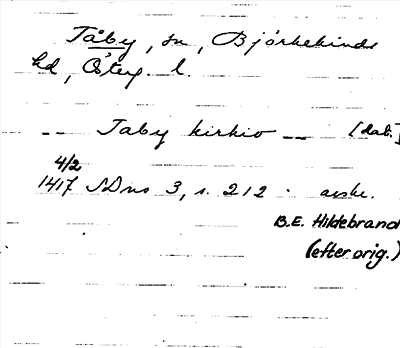 Tåby, sn, Björkekinds
hd, Öster. l.
-- Taby kirkio -- [dat.]
4/2
1417 SDns 3, s. 212. avskr.
B.E. Hildebrand
(efter orig.)